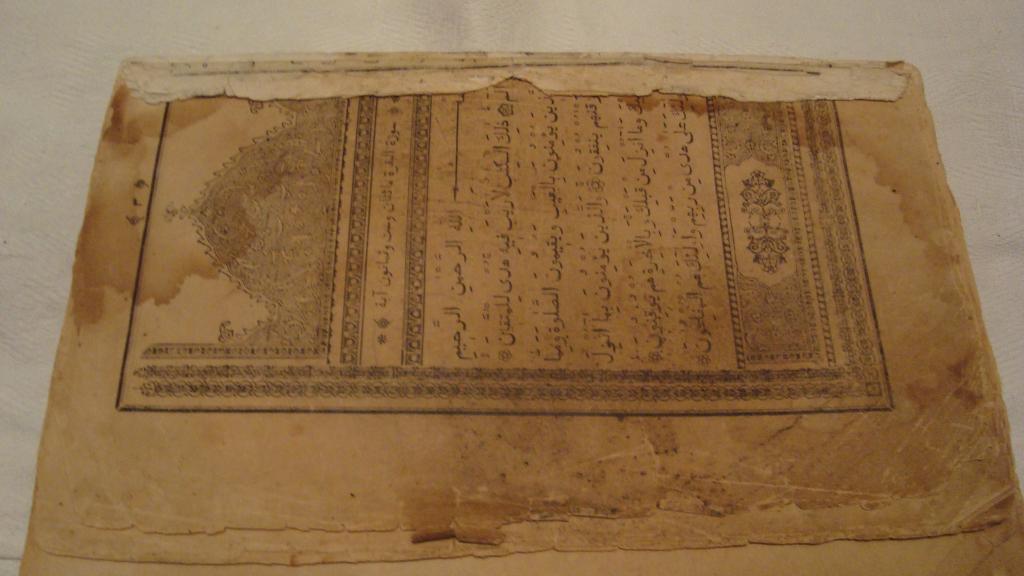 سورة البقرة مائتان وست وثمانون آية
الله الرحمن الرحيم
ذلك الكتب لا ريب فيه هدى للمتقين
يؤمنون بالغيب ويقيمون الصلوة ومما
ينفقون والذين يؤمنون بما انزل
وما انزل من قبلك وبالاخرة هم يوقنون
على هدى من ربهم واولئك هم المفلحون